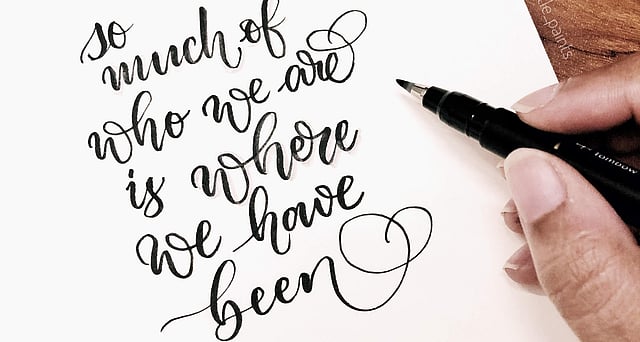 so
much of
who we are
is where
we have
been
tombow